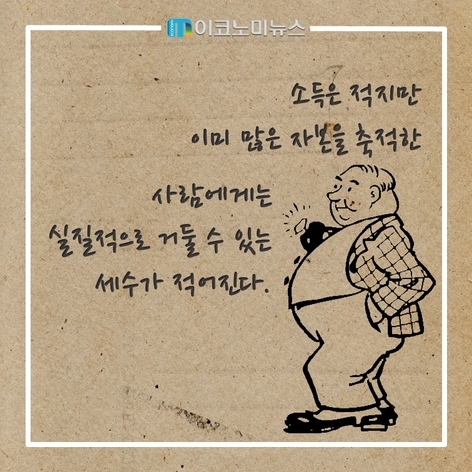 이코노미뉴스
소득은 적지만
이미 많은 자본을 축적한
사람에게는
실질적으로 거둘 수 있는
세수가 적어진다.